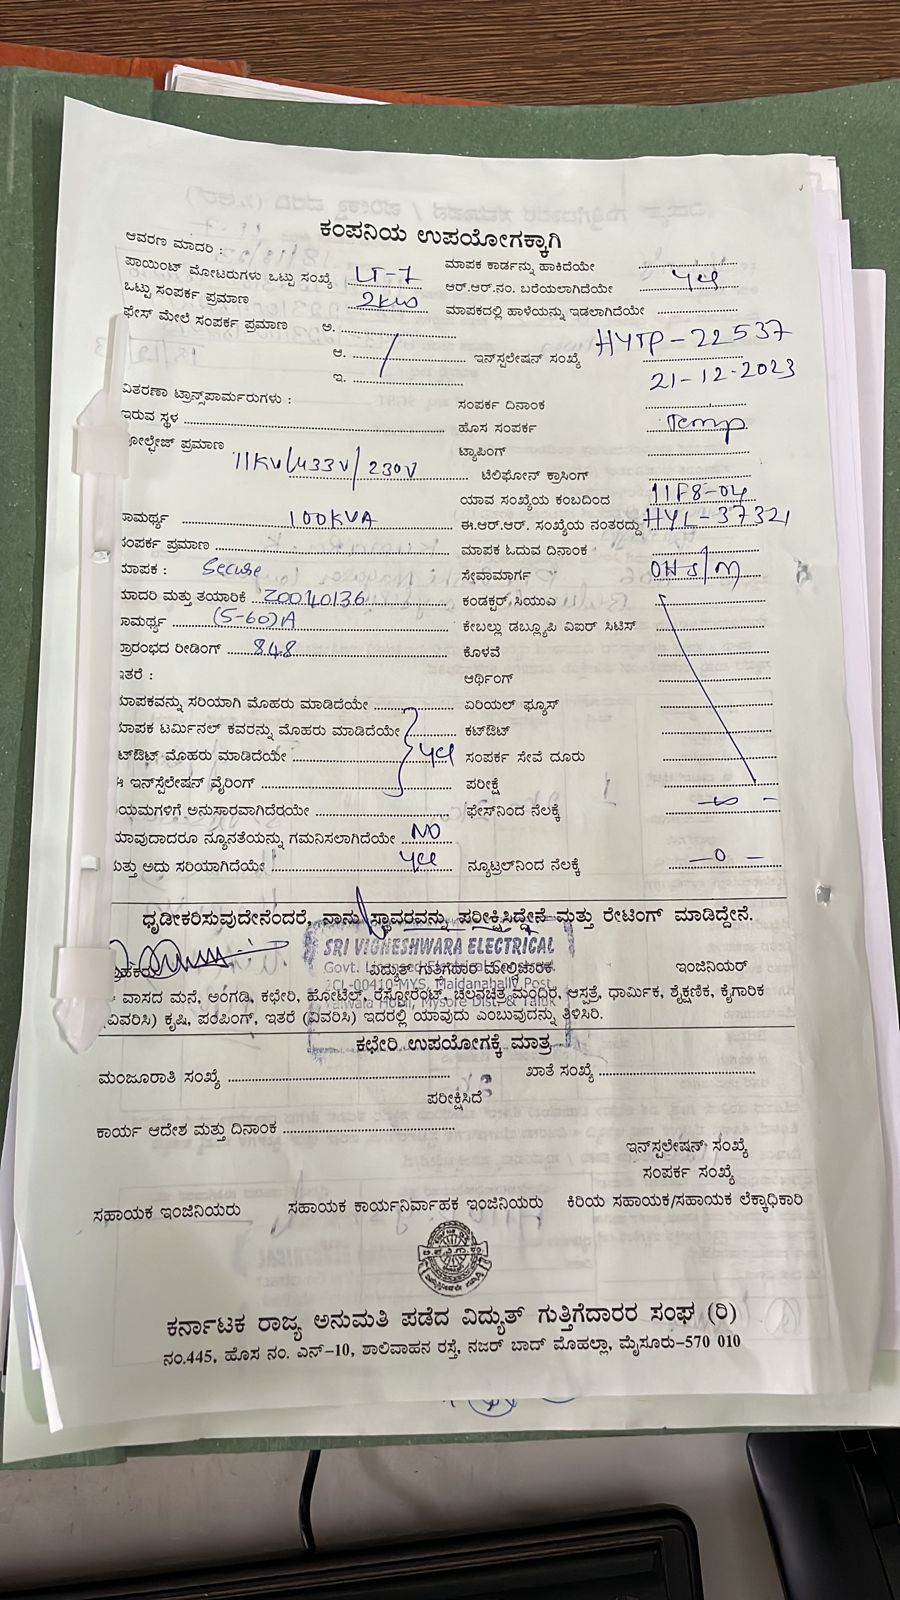 ಕಂಪನಿಯ ಉಪಯೋಗಕ್ಕಾಗಿ
ಆವರಣ ಮಾದರಿ :
ಮಾಪಕ ಕಾರ್ಡನ್ನು ಹಾಕಿದೆಯೇ
ಪಾಯಿಂಟ್ ಮೋಟರುಗಳು ಒಟ್ಟು ಸಂಖ್ಯೆ LT-7
ಆರ್.ಆರ್.ನಂ. ಬರೆಯಲಾಗಿದೆಯೇ yes
ಒಟ್ಟು ಸಂಪರ್ಕ ಪ್ರಮಾಣ 2KW
ಮಾಪಕದಲ್ಲಿ ಹಾಳೆಯನ್ನು ಇಡಲಾಗಿದೆಯೇ
ಫೇಸ್ ಮೇಲೆ ಸಂಪರ್ಕ ಪ್ರಮಾಣ ಅ.
ಆ. ಇನ್‌ಸ್ಟಲೇಷನ್ ಸಂಖ್ಯೆ HYTP-22537
ಇ. 21-12-2023
ವಿತರಣಾ ಟ್ರಾನ್ಸ್‌ಪಾರ್ಮರುಗಳು :
ಸಂಪರ್ಕ ದಿನಾಂಕ
ಇರುವ ಸ್ಥಳ
ಹೊಸ ಸಂಪರ್ಕ Temp
ೋಲ್ಟೇಜ್ ಪ್ರಮಾಣ 11KV/433V/230V
ಟ್ಯಾಪಿಂಗ್
ಟೆಲಿಫೋನ್ ಕ್ರಾಸಿಂಗ್
ಯಾವ ಸಂಖ್ಯೆಯ ಕಂಬದಿಂದ 11F8-04
ಾಮರ್ಥ್ಯ 100KVA
ಈ.ಆರ್.ಆರ್. ಸಂಖ್ಯೆಯ ನಂತರದ್ದು HYL-37321
ಸಂಪರ್ಕ ಪ್ರಮಾಣ
ಮಾಪಕ ಓದುವ ದಿನಾಂಕ
ಮಾಪಕ : Secure
ಸೇವಾಮಾರ್ಗ OHS/M
ಮಾದರಿ ಮತ್ತು ತಯಾರಿಕೆ Z0040136
ಕಂಡಕ್ಟರ್.ಸಿಯುಎ
ಾಮರ್ಥ್ಯ (5-60)A
ಕೇಬಲ್ಲು ಡಬ್ಲ್ಯೂಪಿ ವಿಐರ್ ಸಿಟಿಸ್
ಪ್ರಾರಂಭದ ರೀಡಿಂಗ್ 848
ಕೊಳವೆ
ಇತರೆ :
ಆರ್ಥಿಂಗ್
ಮಾಪಕವನ್ನು ಸರಿಯಾಗಿ ಮೊಹರು ಮಾಡಿದೆಯೇ
ಏರಿಯಲ್ ಫ್ಯೂಸ್
ಮಾಪಕ ಟರ್ಮಿನಲ್ ಕವರನ್ನು ಮೊಹರು ಮಾಡಿದೆಯೇ
ಕಟ್‌ಔಟ್
ಟ್‌ಔಟ್ ಮೊಹರು ಮಾಡಿದೆಯೇ yes
ಸಂಪರ್ಕ ಸೇವೆ ದೂರು
ಈ ಇನ್‌ಸ್ಟೆಲೇಷನ್ ವೈರಿಂಗ್
ಪರೀಕ್ಷೆ
ಿಯಮಗಳಿಗೆ ಅನುಸಾರವಾಗಿದೆರಯೇ
ಫೇಸ್‌ನಿಂದ ನೆಲಕ್ಕೆ
ಯಾವುದಾದರೂ ನ್ಯೂನತೆಯನ್ನು ಗಮನಿಸಲಾಗಿದೆಯೇ NO
ಮತ್ತು ಅದು ಸರಿಯಾಗಿದೆಯೇ yes
ನ್ಯೂಟ್ರಲ್‌ನಿಂದ ನೆಲಕ್ಕೆ —0—
ಧೃಡೀಕರಿಸುವುದೇನೆಂದರೆ, ನಾನು ಸ್ಥಾವರವನ್ನು ಪರೀಕ್ಷಿಸಿದ್ದೇನೆ ಮತ್ತು ರೇಟಿಂಗ್ ಮಾಡಿದ್ದೇನೆ.
SRI VIGNESHWARA ELECTRICAL
ವಿದ್ಯುತ್ ಗುತ್ತಿಗೆದಾರ ಮೇಲ್ವಿಚಾರಕ
ಇಂಜಿನಿಯರ್
2CL-00410-MYS, Maidanahally Post
Yelwala Hobli, Mysore Dist & Talluk
ವಾಸದ ಮನೆ, ಅಂಗಡಿ, ಕಛೇರಿ, ಹೋಟೆಲ್, ರೆಸ್ಟೋರೆಂಟ್, ಚಲನಚಿತ್ರ ಮಂದಿರ, ಆಸ್ಪತ್ರೆ, ಧಾರ್ಮಿಕ, ಶೈಕ್ಷಣಿಕ, ಕೈಗಾರಿಕ
(ವಿವರಿಸಿ) ಕೃಷಿ, ಪಂಪಿಂಗ್, ಇತರೆ (ವಿವರಿಸಿ) ಇದರಲ್ಲಿ ಯಾವುದು ಎಂಬುವುದನ್ನು ತಿಳಿಸಿರಿ.
ಕಛೇರಿ ಉಪಯೋಗಕ್ಕೆ ಮಾತ್ರ
ಮಂಜೂರಾತಿ ಸಂಖ್ಯೆ
ಖಾತೆ ಸಂಖ್ಯೆ
ಪರೀಕ್ಷಿಸಿದೆ
ಕಾರ್ಯ ಆದೇಶ ಮತ್ತು ದಿನಾಂಕ
ಇನ್‌ಸ್ಟಲೇಷನ್ ಸಂಖ್ಯೆ
ಸಂಪರ್ಕ ಸಂಖ್ಯೆ
ಸಹಾಯಕ ಇಂಜಿನಿಯರು ಸಹಾಯಕ ಕಾರ್ಯನಿರ್ವಾಹಕ ಇಂಜಿನಿಯರು ಕಿರಿಯ ಸಹಾಯಕ/ಸಹಾಯಕ ಲೆಕ್ಕಾಧಿಕಾರಿ
ಕರ್ನಾಟಕ ರಾಜ್ಯ ಅನುಮತಿ ಪಡೆದ ವಿದ್ಯುತ್ ಗುತ್ತಿಗೆದಾರರ ಸಂಘ (ರಿ)
ನಂ.445, ಹೊಸ ನಂ. ಎನ್-10, ಶಾಲಿವಾಹನ ರಸ್ತೆ, ನಜರ್ ಬಾದ್ ಮೊಹಲ್ಲಾ, ಮೈಸೂರು-570 010